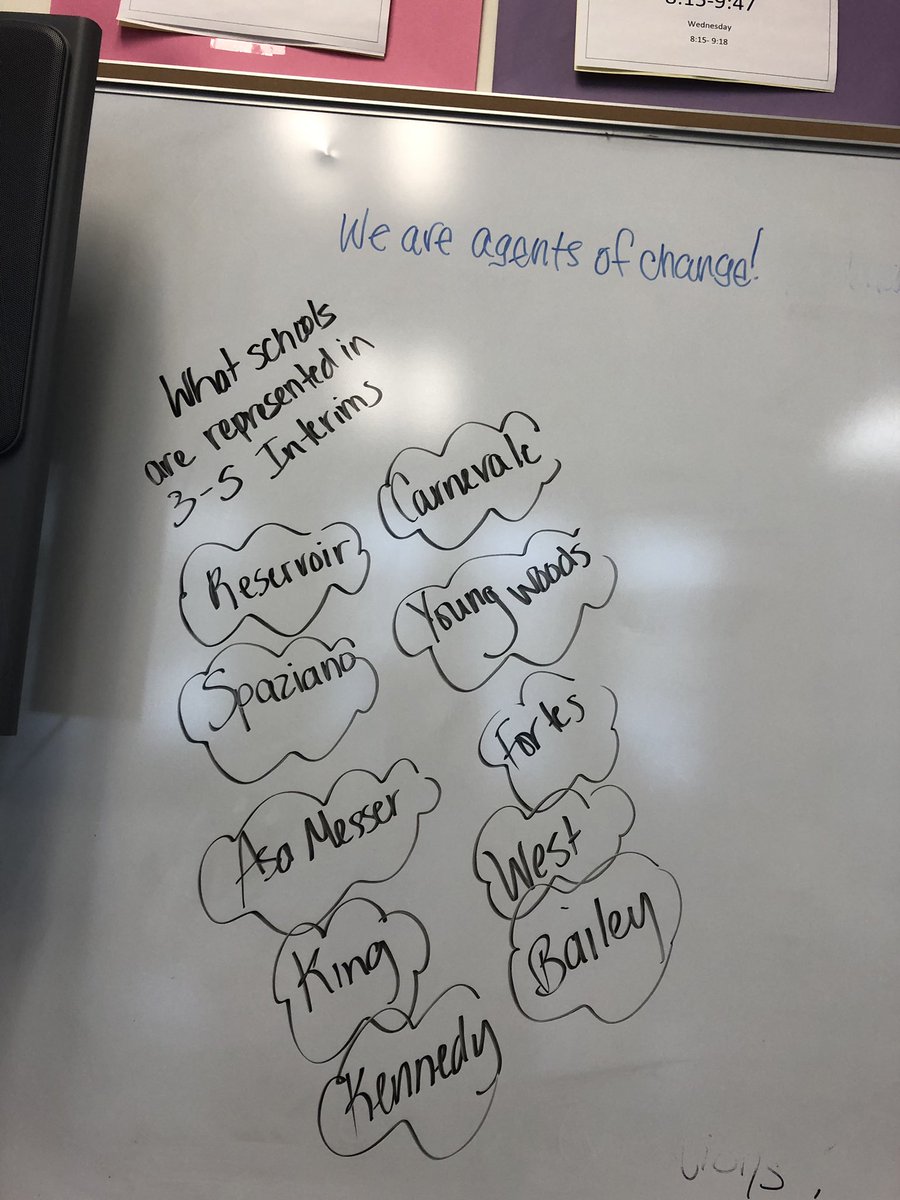 8:15-9:47
Wednesday
8:15- 9:18
We are agents of change!
What schools
are represented in
3-5 Interims
Carnevale
Reservoir
Young woods
Spaziano
Fortes
Asa Messer
West
King
Bailey
Kennedy